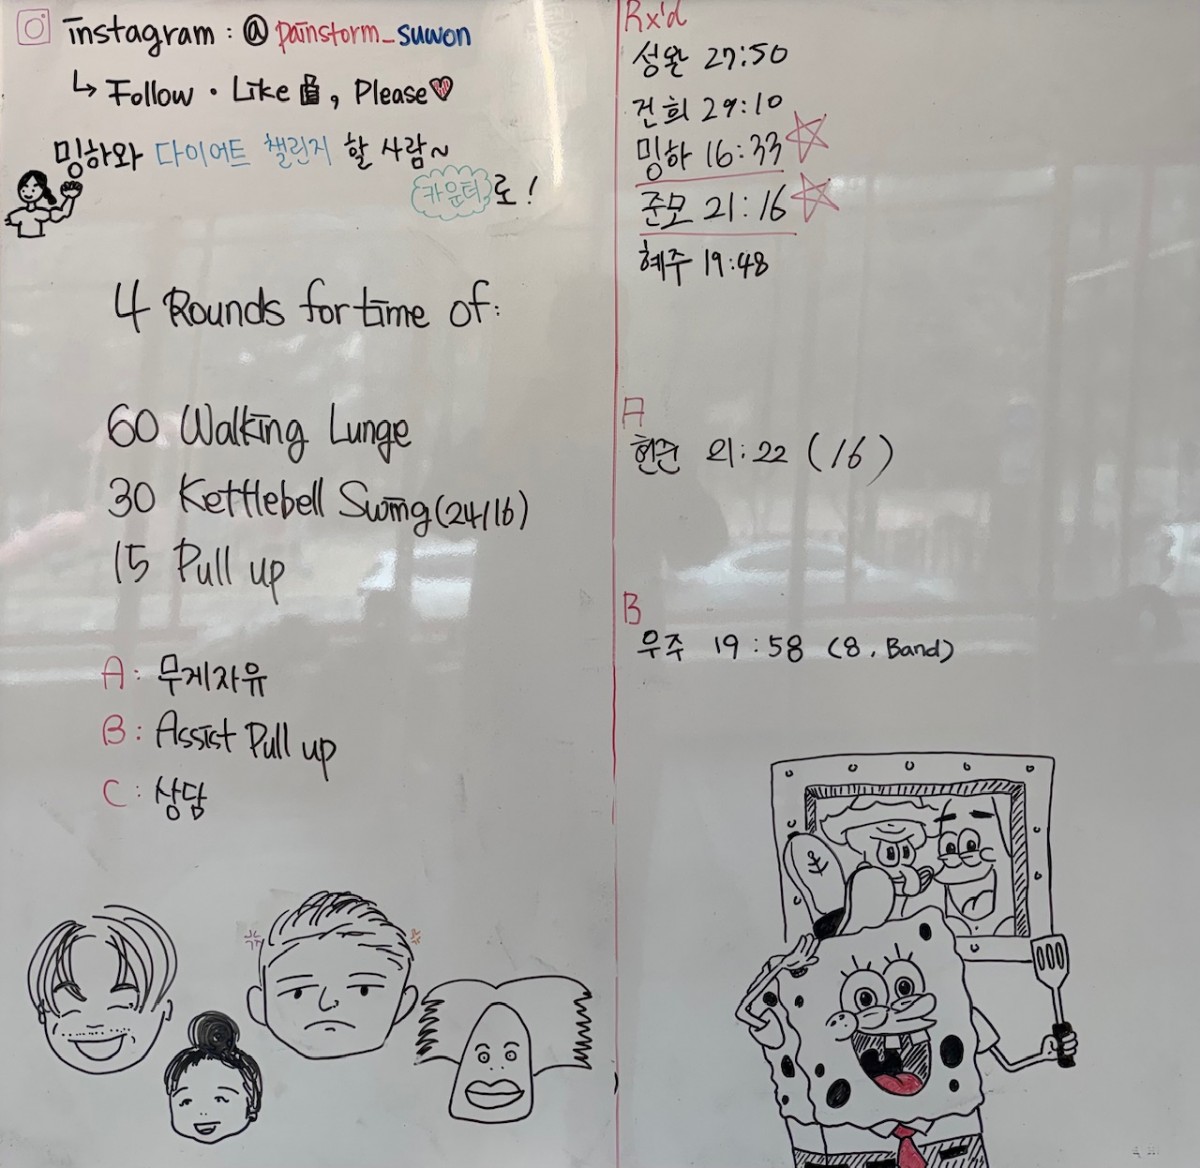 instagram : @ painstorm_suwon
↳ Follow · Like 👍, Please ♥
밍하와 다이어트 챌린지 할 사람~
카운터로!
4 Rounds for time of:
60 Walking Lunge
30 Kettlebell Swing (24/16)
15 Pull up
A : 무게자유
B : Assist Pull up
C : 상담
Rx'd
성완 27:50
건희 29:10
밍하 16:33 ☆
준모 21:16 ☆
혜주 19:48
A
현준 21:22 (16)
B
우주 19:58 (8, Band)